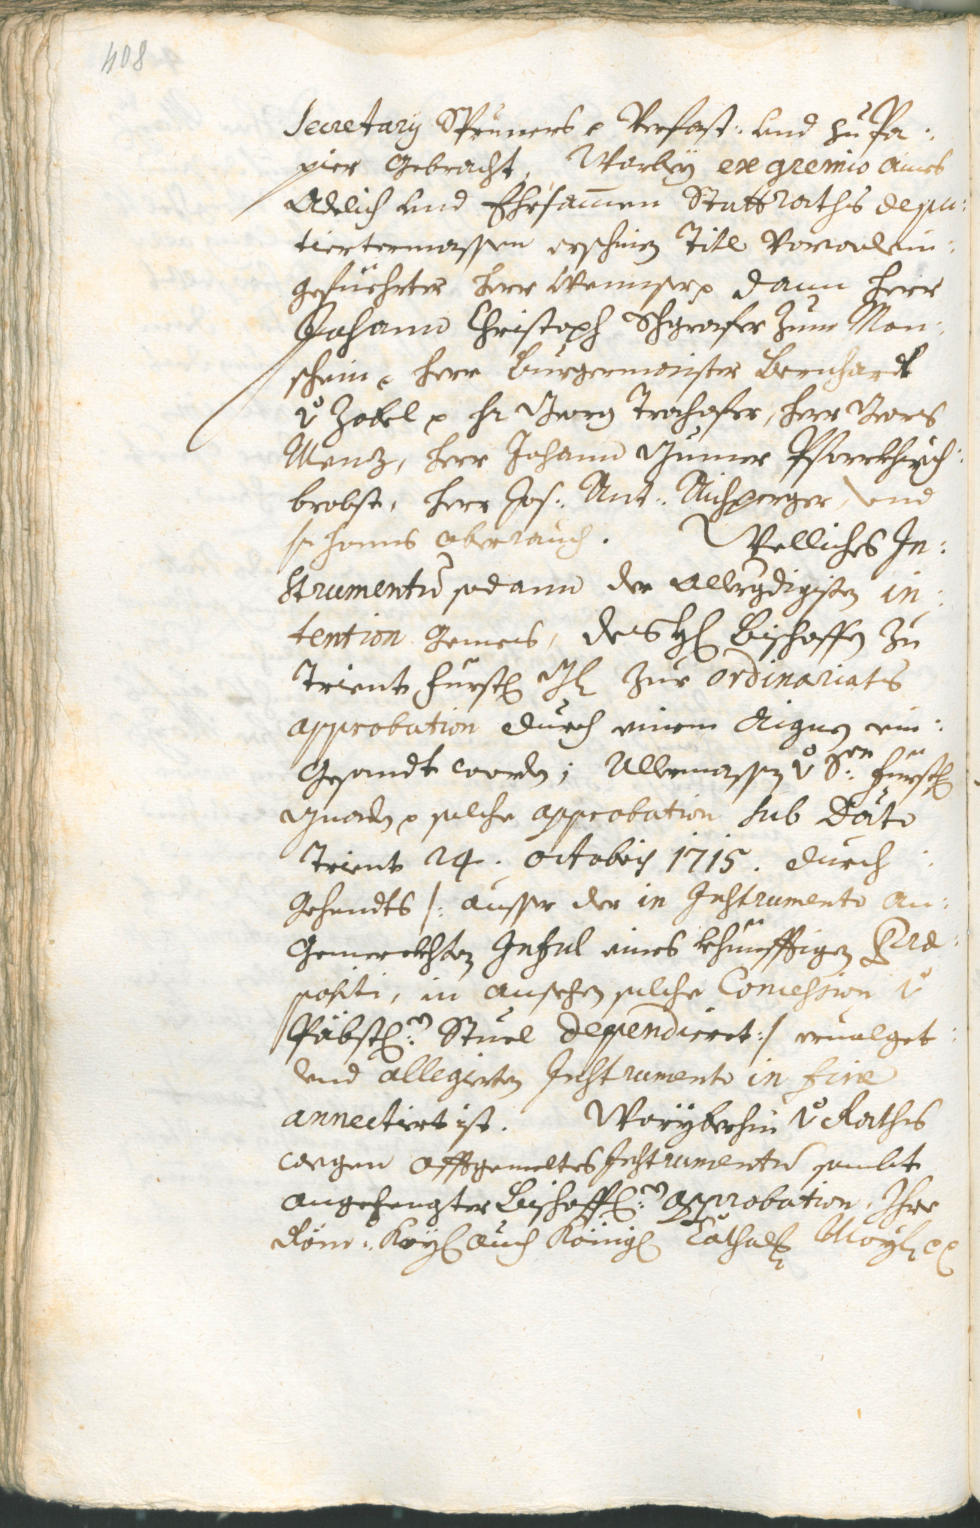 408
Secretarÿ Spruners p Verfast: und zu Pa:
pier Gebracht, Warbeÿ ex gremio aines
Adelich und Ehrsamen Stattraths depu:
tiertermassen erschinen Titl Vorwolein:
gefüehrter Herr dann Herr
Johann Christoph Schgrafer zum Man:
schein p Herr Burgermaister Bernhardt
v Zobel p hr Georg Trohofer, Herr Georg
Menz, Herr Johann Gumer Pfarrkhirch:
brobst, Herr Jos: Ant: Aichperger, und
hr Hanns aberrauch. Welliches In:
Strumentum sodann der Allergdigisten in:
tention gemess, des H Bischoffen zu
Trient Fürstl Gl zur ordinariats
approbation durch einem Aignen ein:
Gesandt worden; Allermassen v Sr: Fürstl
Gnaden p solche approbation sub Dato
Trient 24. octobris 1715. durch:
Gehendts /: ausser der in Instrumento an:
Gemerckhten Inful eines khünfftigen Præ:
positi, in ansehen solche Concession v
Päbstl: Stuel dependieret:/ ervolget:
und allegierten Instrumento in fine
annectiert ist. Woryberhin v Raths
wegen offtgemeltes Instrumentum sambt
angehengter Bischoffl: approbation, Ihro
Röm: Kaÿl auch Königl Cathol Maÿl pp